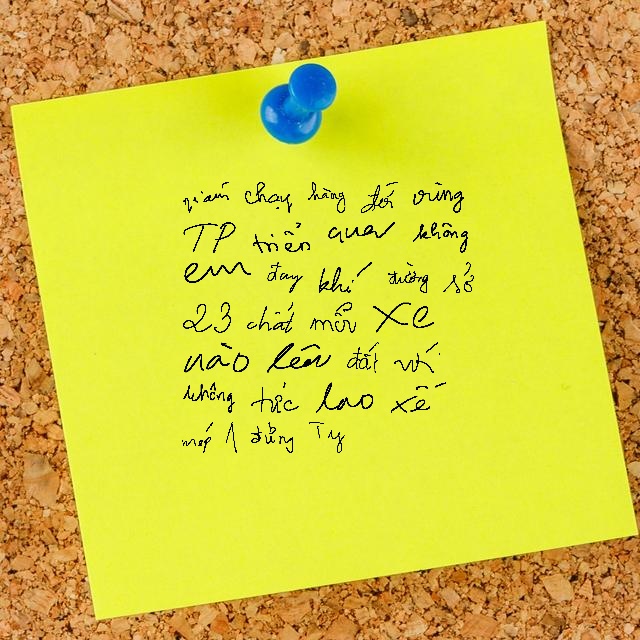 giám chạy hàng đới vùng
TP triển quan không
em đay khí đường sở
23 chất mỗi xe
nào lên đất với
không tức lao xế
mép 1 đứng Ty